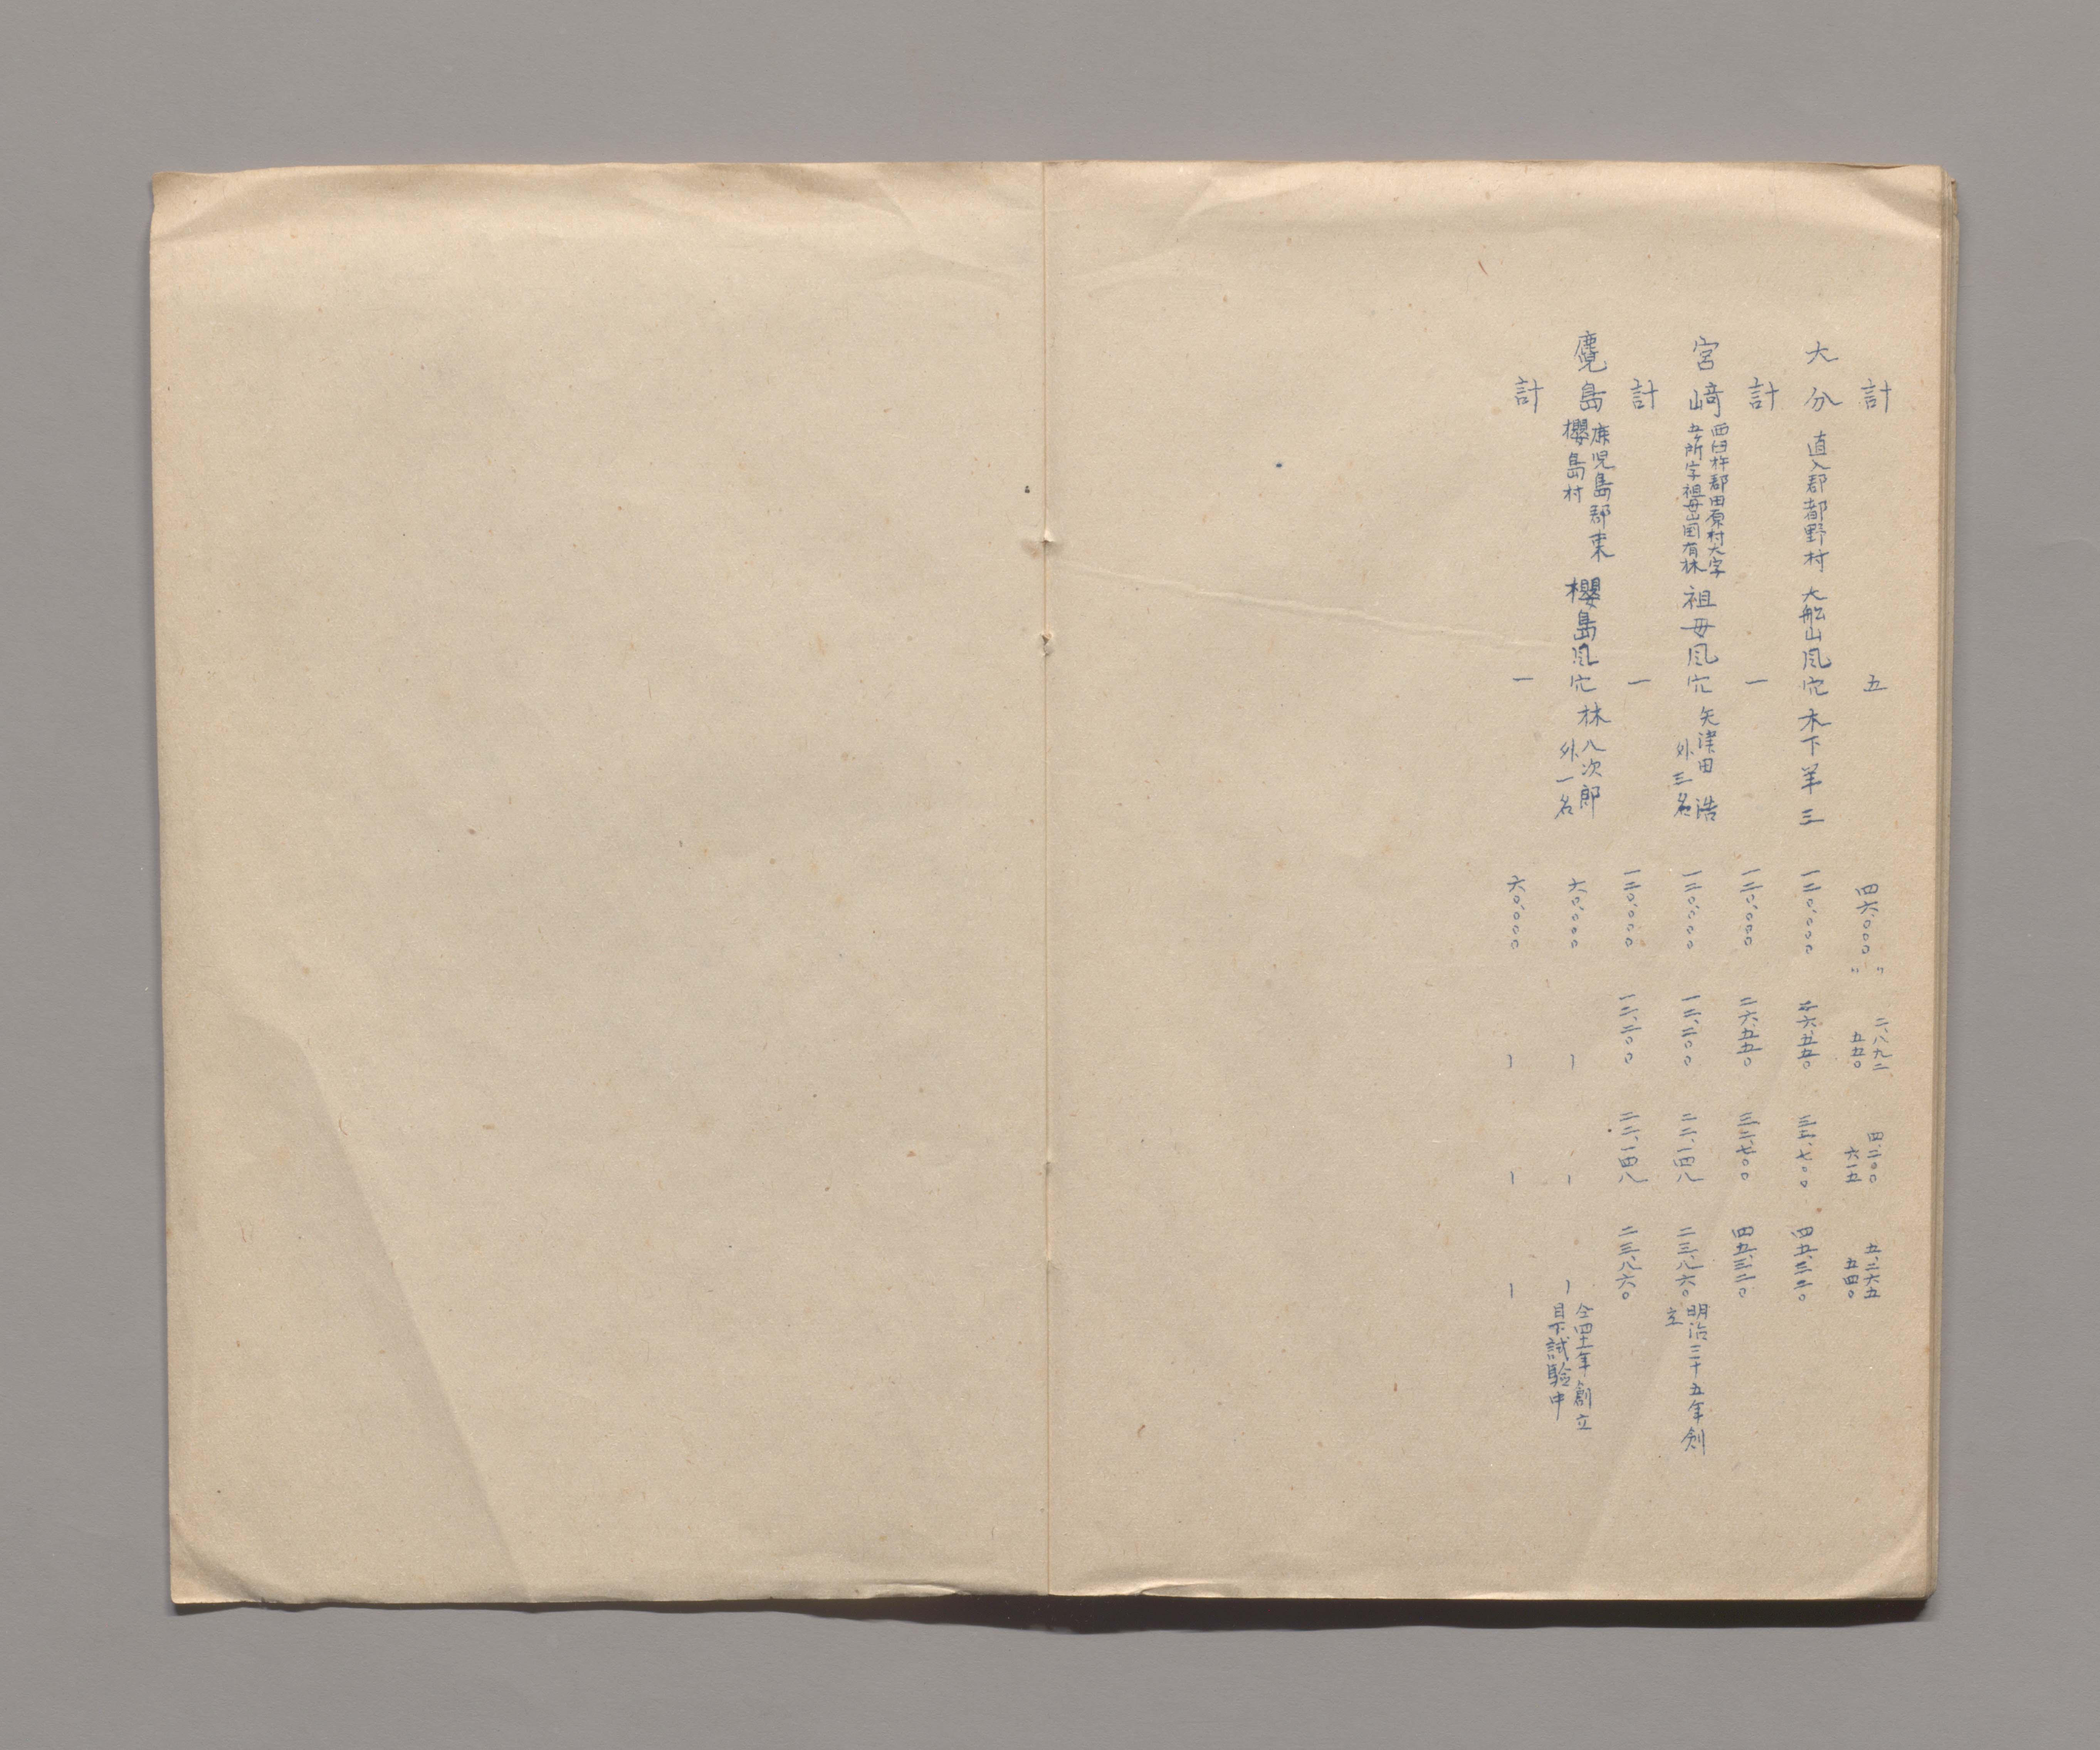 計 五 四六、〇〇〇 〃〃 二、八九二 五五〇 四、二〇〇 六一五 五、二六五 五四〇
大分 直入郡都野村 大船山風穴 木下羊三 一二〇、〇〇〇 二六、五五〇 三三、七〇〇 四五、三二〇
計 一 一二〇、〇〇〇 二六、五五〇 三三、七〇〇 四五、三二〇
宮崎 西臼杵郡田原村大字
五ヶ所字祖母山国有林 祖母風穴 矢津田 浩
外三名 一二〇、〇〇〇 一二、二〇〇 二二、一四八 二三、八六〇 明治三十五年創
立
計 一 一二〇、〇〇〇 一二、二〇〇 二二、一四八 二三、八六〇
島 鹿児島郡東
櫻島村 櫻島風穴 林八次郎
外一名 六〇、〇〇〇 ー ー ー 仝四十一年創立
目下試験中
計 一 六〇、〇〇〇 ー ー ー